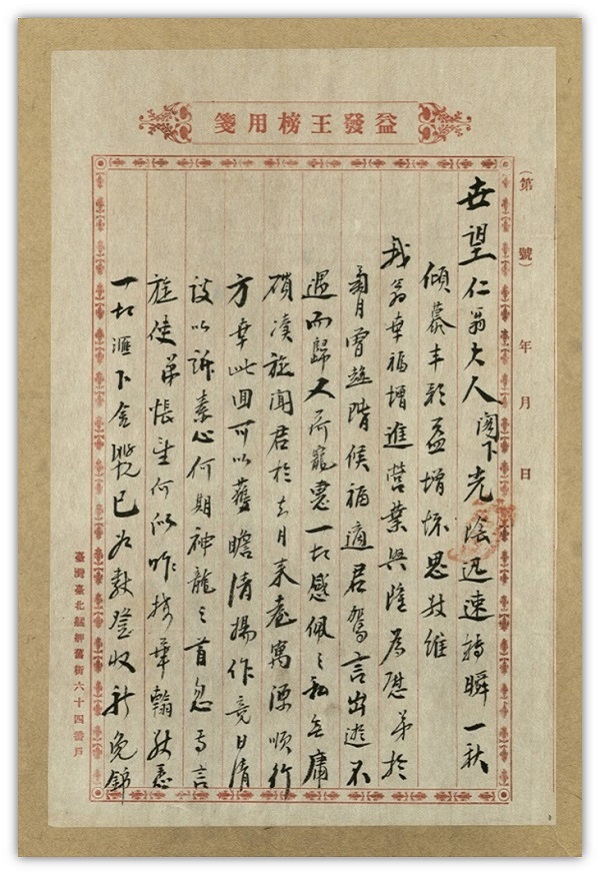 益發王榜用箋
(第 號) 年 月 日
世望仁翁大人閣下光陰迅速轉瞬一秋
傾慕丰彩益增懷思敬維
我翁幸福增進營業興隆為慰弟於
前月曾趨階候福適君駕言出遊不
遇而歸又荷寵惠一切感佩之私無庸
瑣瀆旋聞君於去月來臺寓源順行
方幸此回可以藉瞻清揚作竟日清
談以訴素心何期神龍之首忽焉言
旋使弟悵望何似昨接華翰敬悉
一切滙下金已如數登收祈免錦
臺灣臺北艋舺舊新六十四番戶